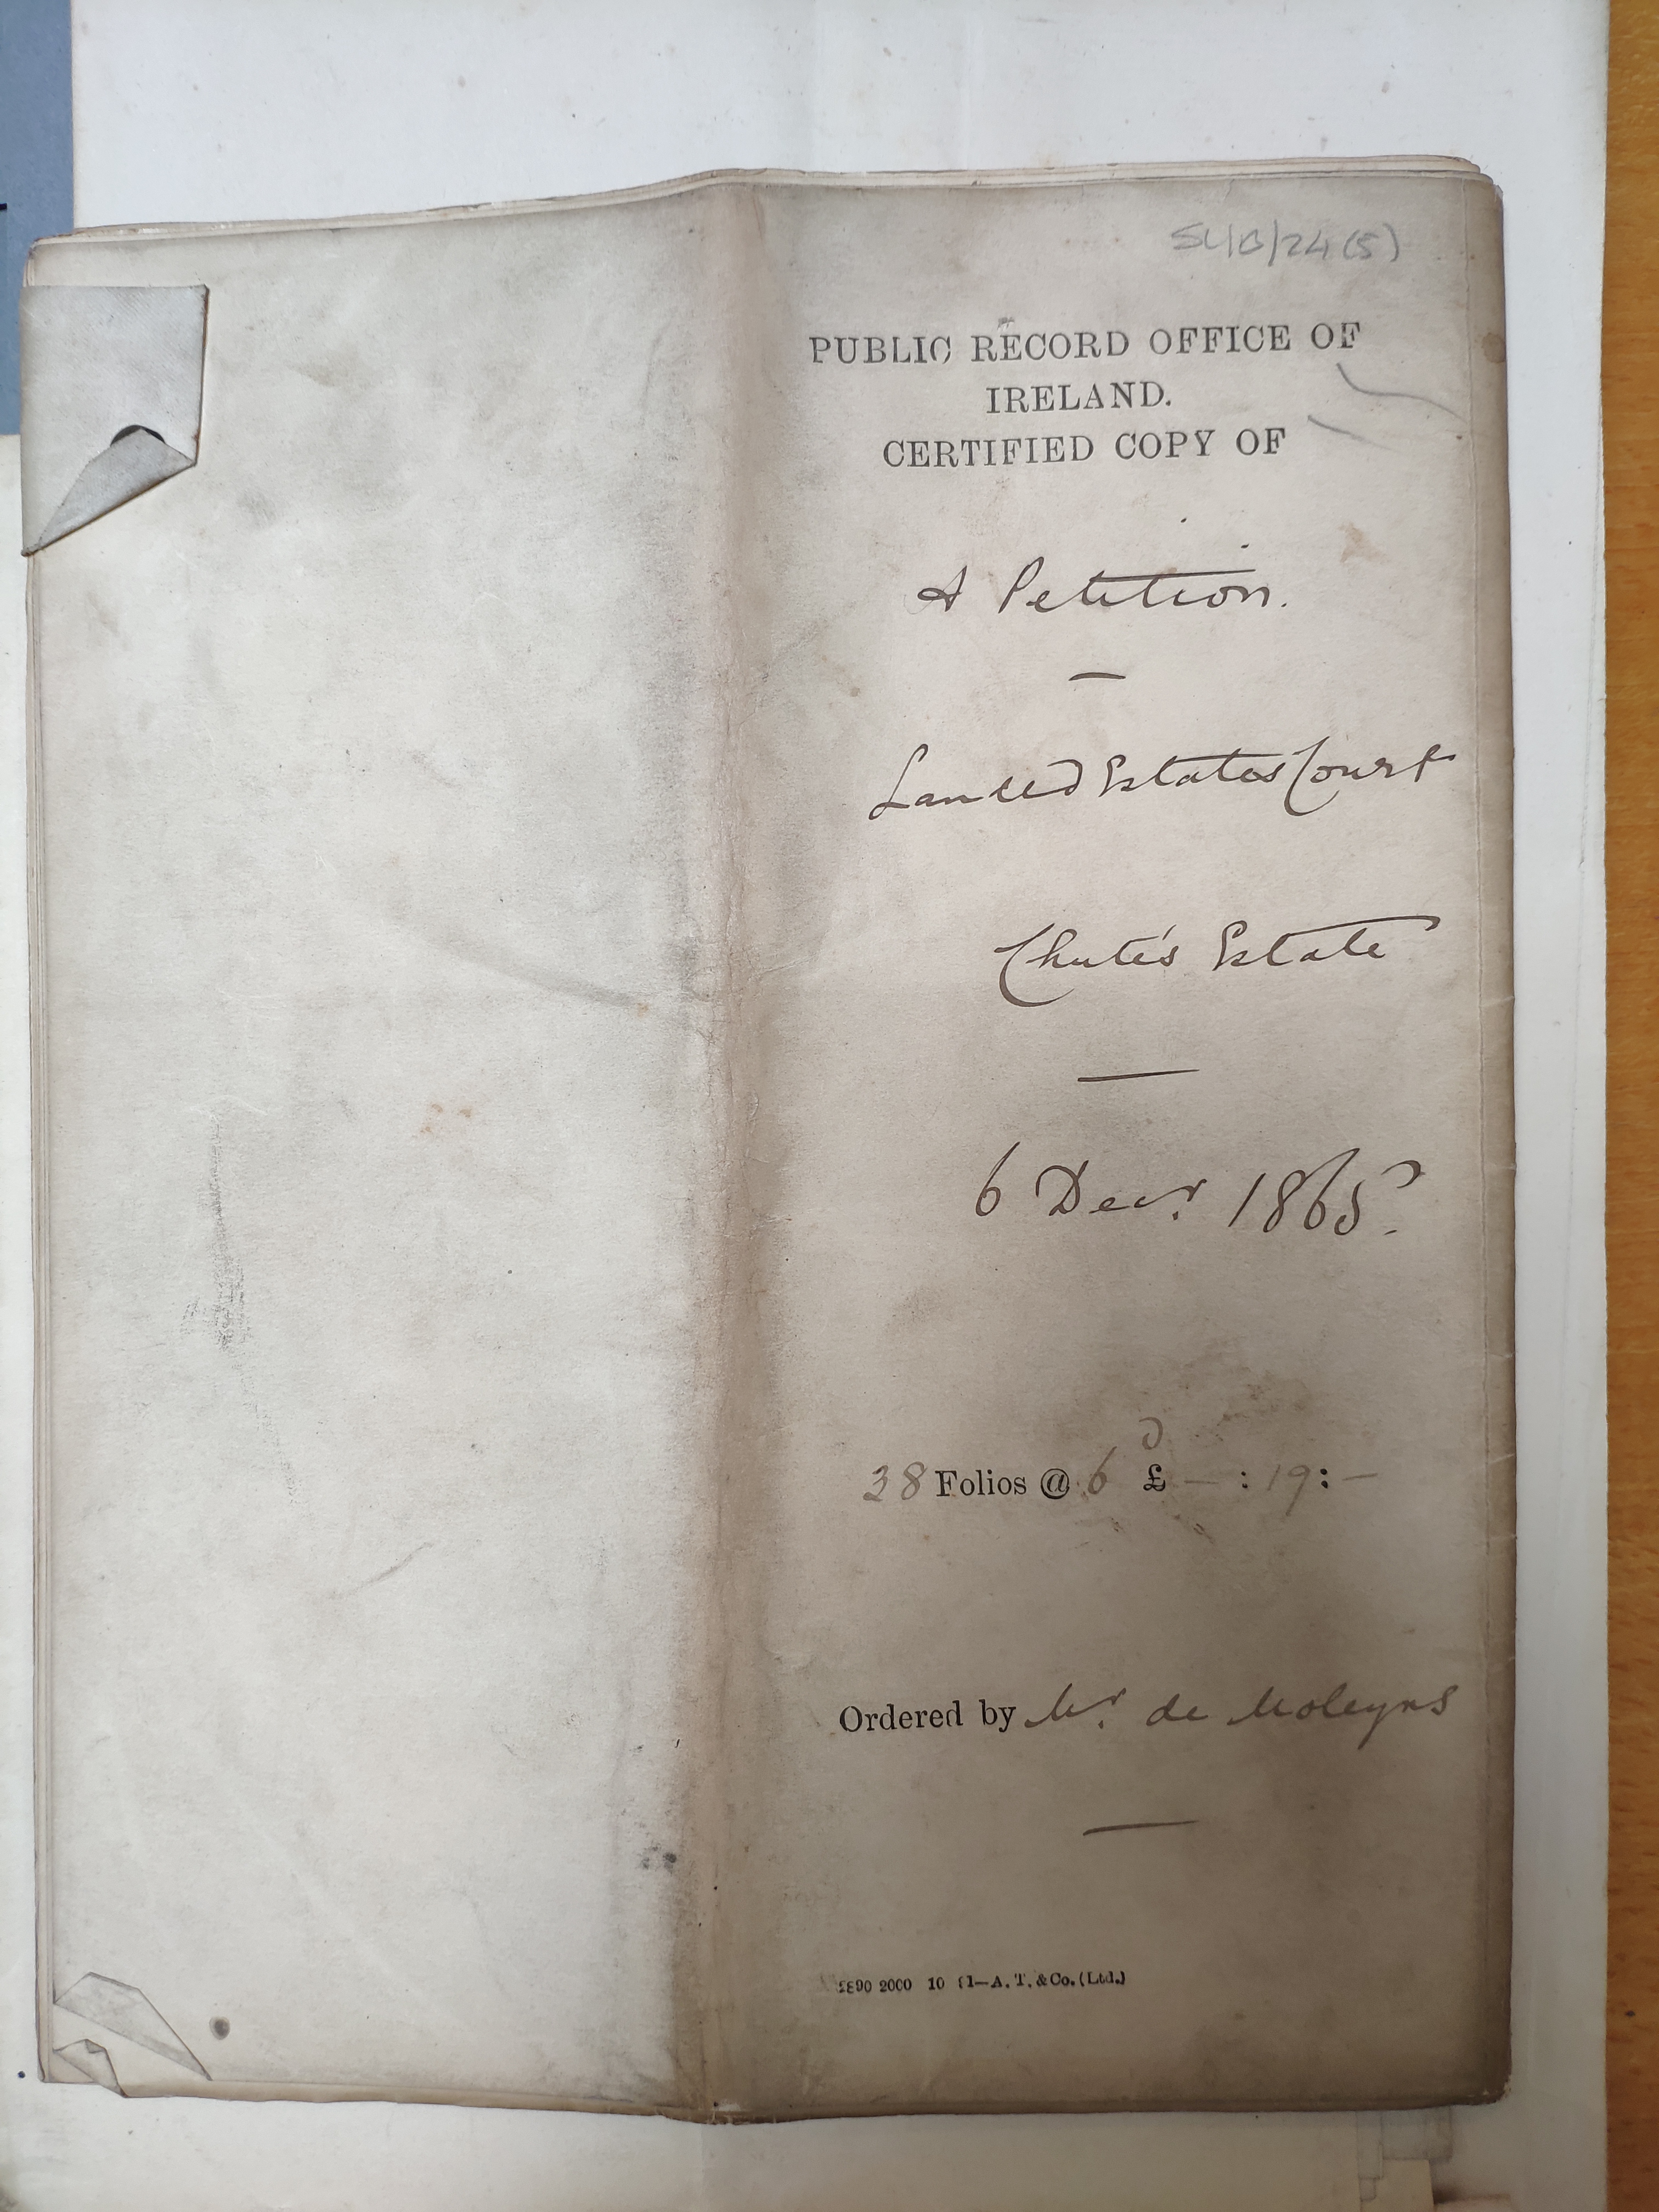 SL/B/24 (5)
PUBLIC RECORD OFFICE OF
IRELAND.
CERTIFIED COPY OF
A Petition.
Landed Estates Court
Chute's Estate
6 Decr. 1865.
38 Folios @ 6 d £ — : 19 : —
Ordered by Mr. de Moleyns
2000 10 11—A. T. & Co. (Ltd.)